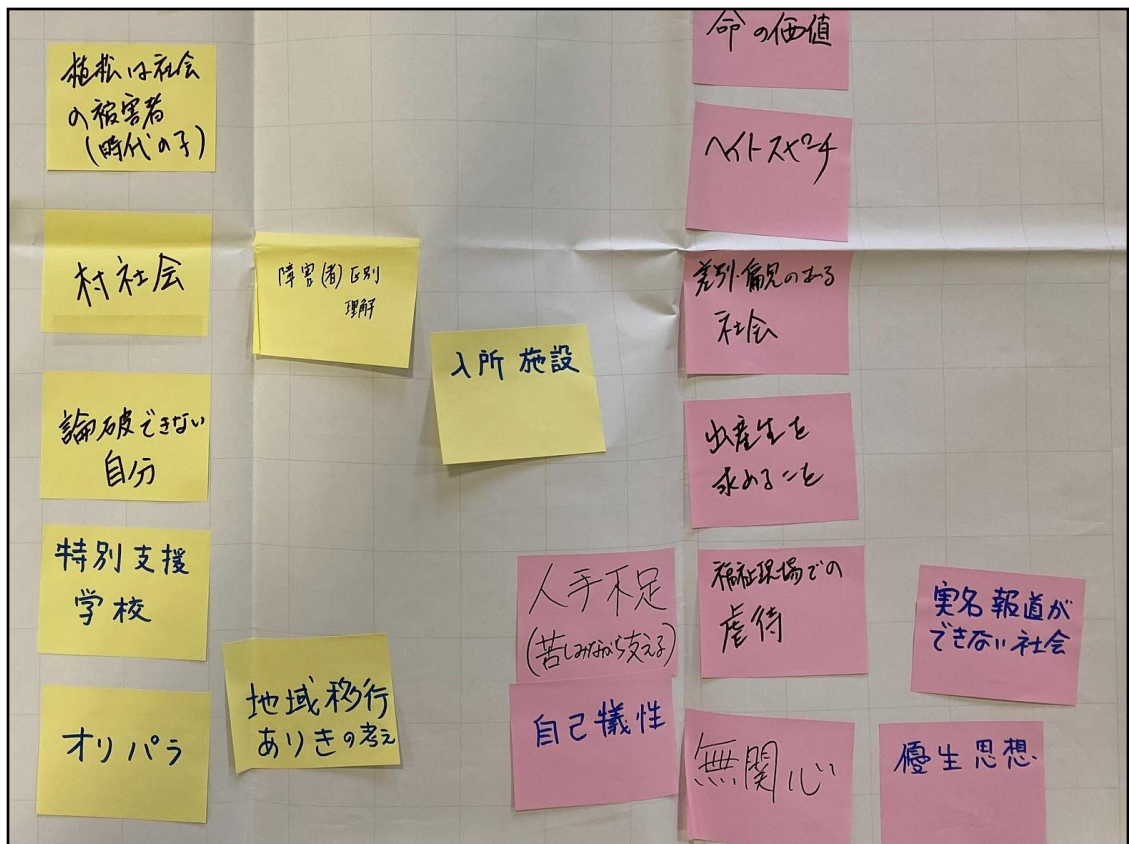 植松は社会
の被害者
(時代の子)
村社会
論破できない
自分
特別支援
学校
オリパラ
障害(者)区別
理解
地域移行
ありきの考え
入所施設
人手不足
(苦しみながら支える)
自己犠性
命の価値
ヘイトスピーチ
差別・偏見のある
社会
出産生を
求めることを
福祉現場での
虐待
無関心
実名報道が
できない社会
優生思想